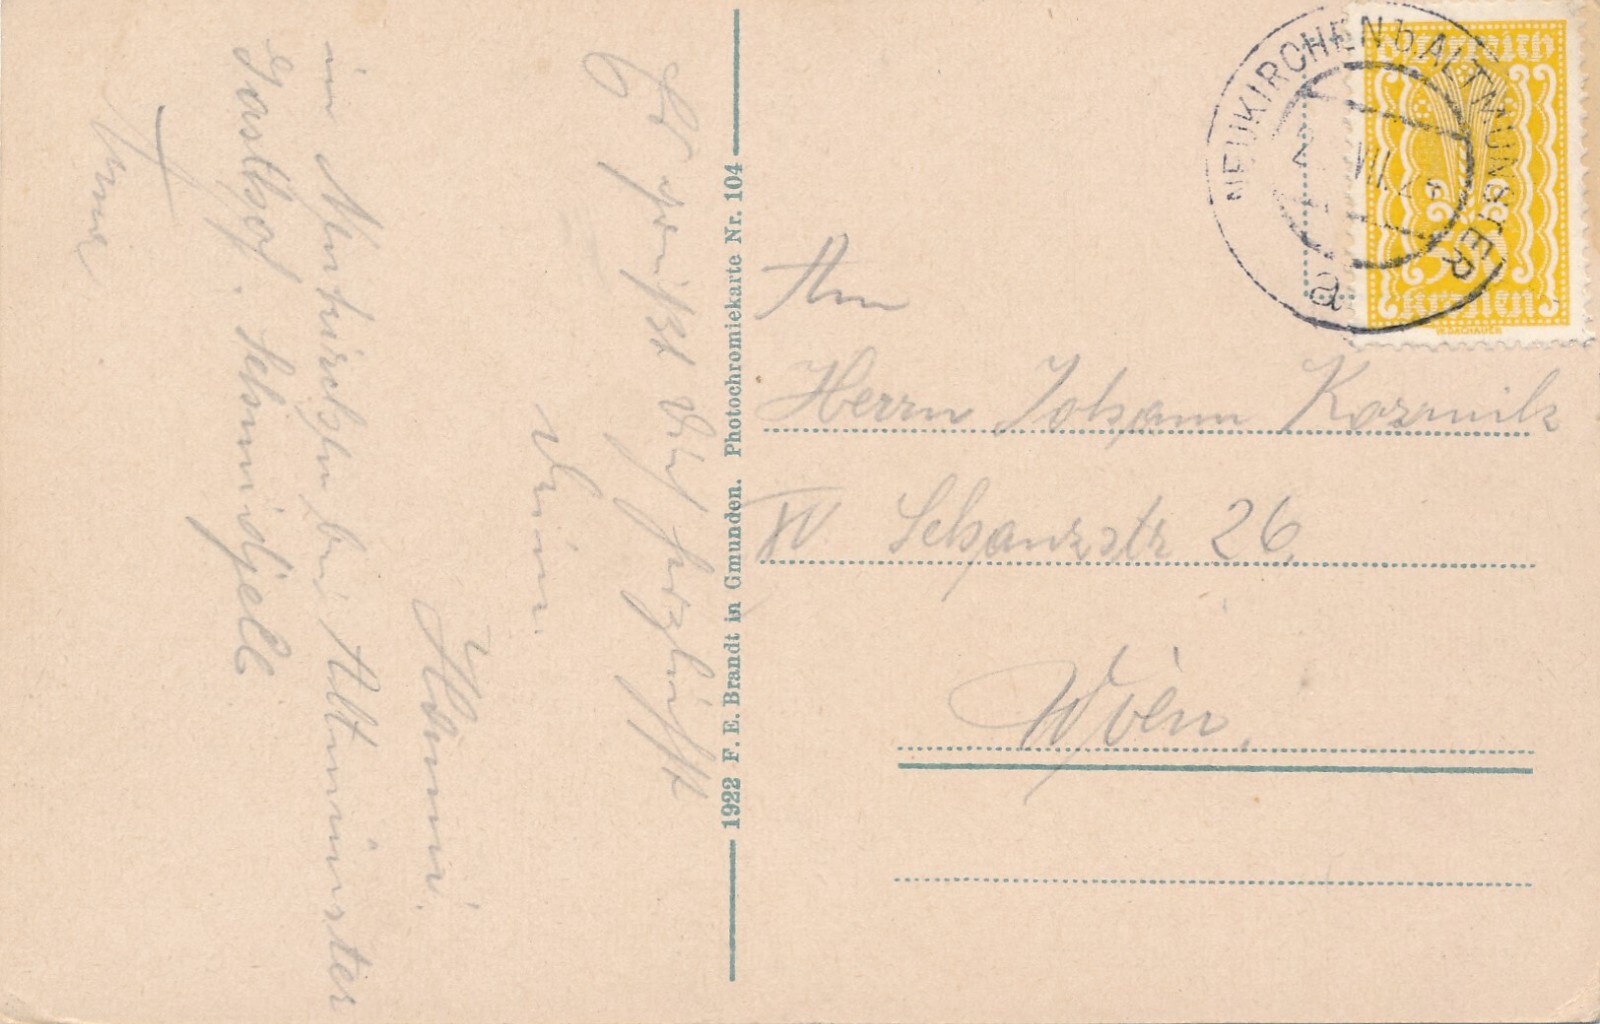 Es grüßt Dich herzlichst
Deine
Hermi.
in Neukirchen bei Altmünster
Gasthof.
1922 F. E. Brandt in Gmunden. Photochromiekarte Nr. 104
NEUKIRCHEN b ALTMÜNSTER
a
Österreich
Kronen
R. DACHAUER
An
Herrn Johann
IV Schanzstr 26
Wien.